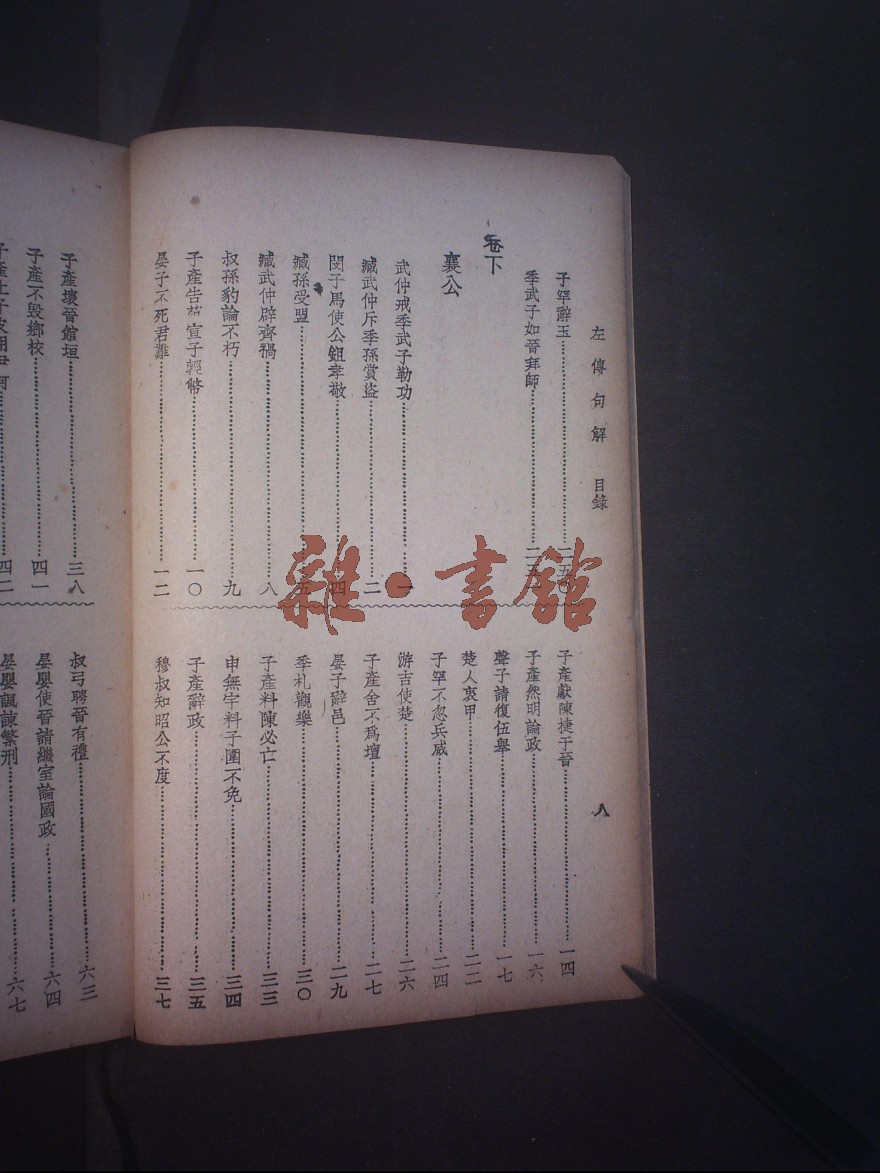 左傳句解 目錄
八
子罕辭玉……二五〇
季武子如晉拜師……二五
卷下
襄公
武仲戒季武子勒功……一
臧武仲斥季孫賞盜……二
閔子馬使公鉏孝敬……四
臧孫受盟……五
臧武仲辟齊禍……八
叔孫豹論不朽……九
子產告 宣子輕幣……一〇
晏子不死君難……一二
子產獻陳捷于晉……一四
子產然明論政……一六
聲子請復伍舉……一七
楚人衷甲……二二
子罕不忽兵威……二四
游吉使楚……二六
子產舍不爲壇……二七
晏子辭邑……二九
季札觀樂……三〇
子產料陳必亡……三三
申無宇料子圍不免……三四
子產辭政……三五
穆叔知昭公不度……三七
子產壞晉館垣……三八
子產不毀鄉校……四一
子產止子皮用尹何……四二
叔弓聘晉有禮……六三
晏嬰使晉請繼室論國政……六四
晏嬰諷諫繁刑……六七
雜·書館